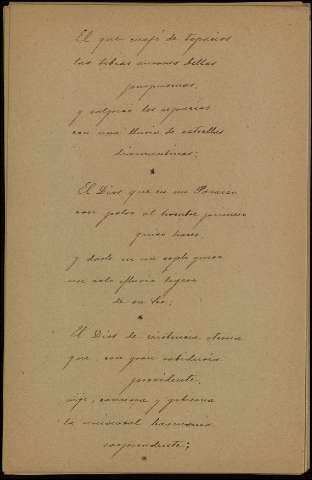 El que cuajó de topacios
las tibias auroras bellas
purpurinas,
y salpicó los espacios
con una lluvia de estrellas
diamantinas;
*
El Dios que en un Paraiso
con polvo al hombre primero
quiso hacer,
y darle en un soplo quiso
un solo fluvio ligero
de su Ser;
*
El Dios de existencia eterna
que, con gran sabiduría
providente,
rige, conserva y gobierna
la universal harmonia
sorprendente;
*